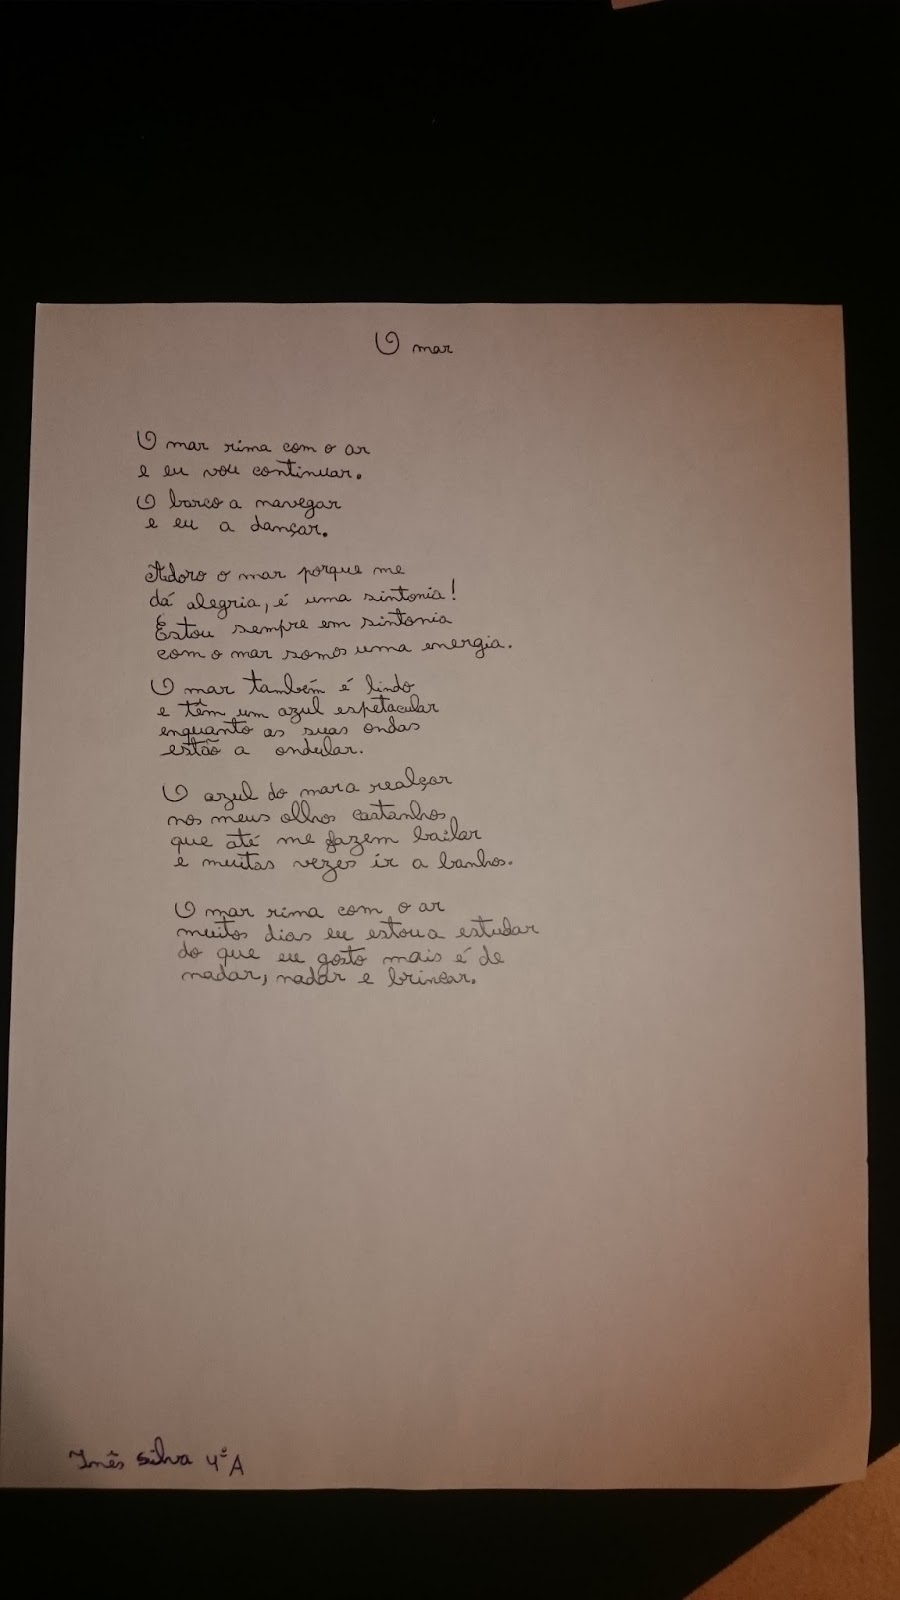 O mar
O mar rima com o ar
e eu vou continuar.
O barco a navegar
e eu a dançar.
Adoro o mar porque me
dá alegria, é uma sintonia!
Estou sempre em sintonia
com o mar somos uma energia.
O mar também é lindo
e têm um azul espetacular
enquanto as suas ondas
estão a ondular.
O azul do mar a realçar
nos meus olhos castanhos
que até me fazem bailar
e muitas vezes ir a banhos.
O mar rima com o ar
muitos dias eu estou a estudar
do que eu gosto mais é de
nadar, nadar e brincar.
Inês Silva 4ºA